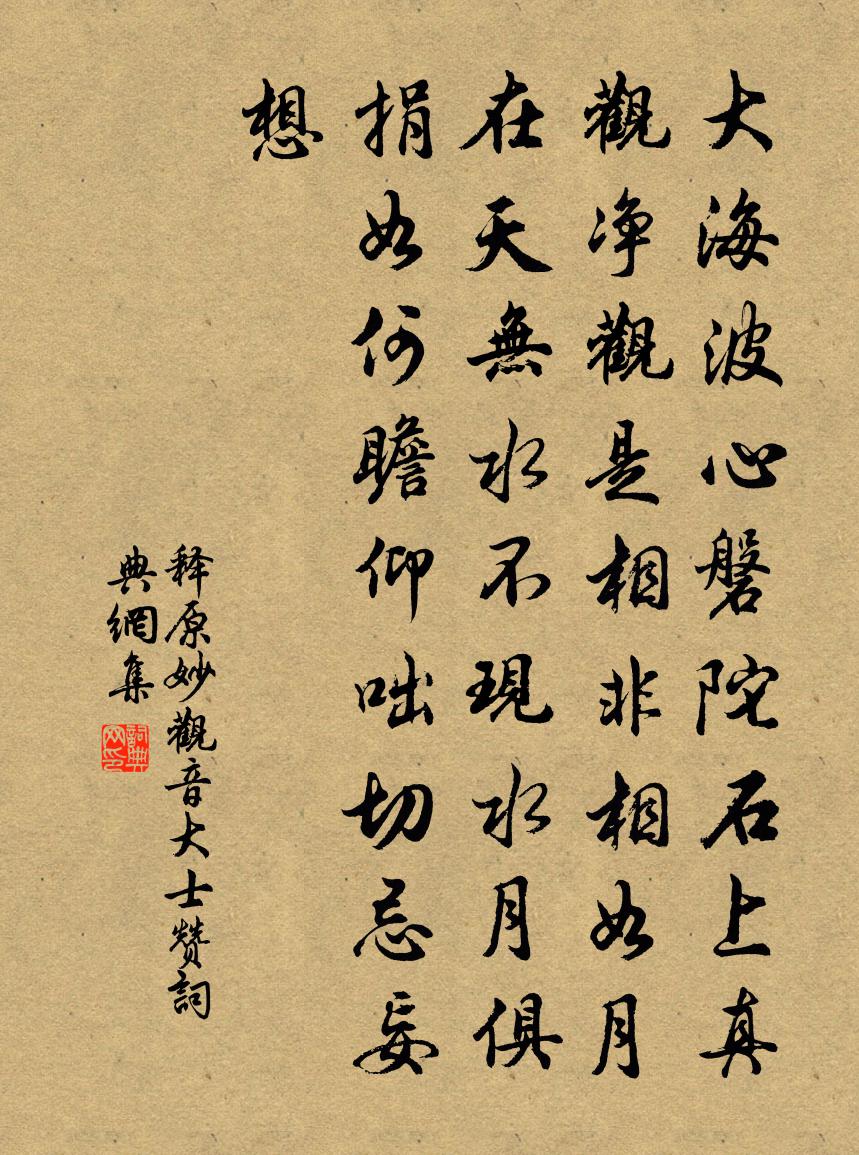 大海波心磐陀石上真
觀净觀是相非相如月
在天無水不現水月俱
捐如何瞻仰咄切忌妄
想
释原妙觀音大士赞詞
典網集
詞典
网印